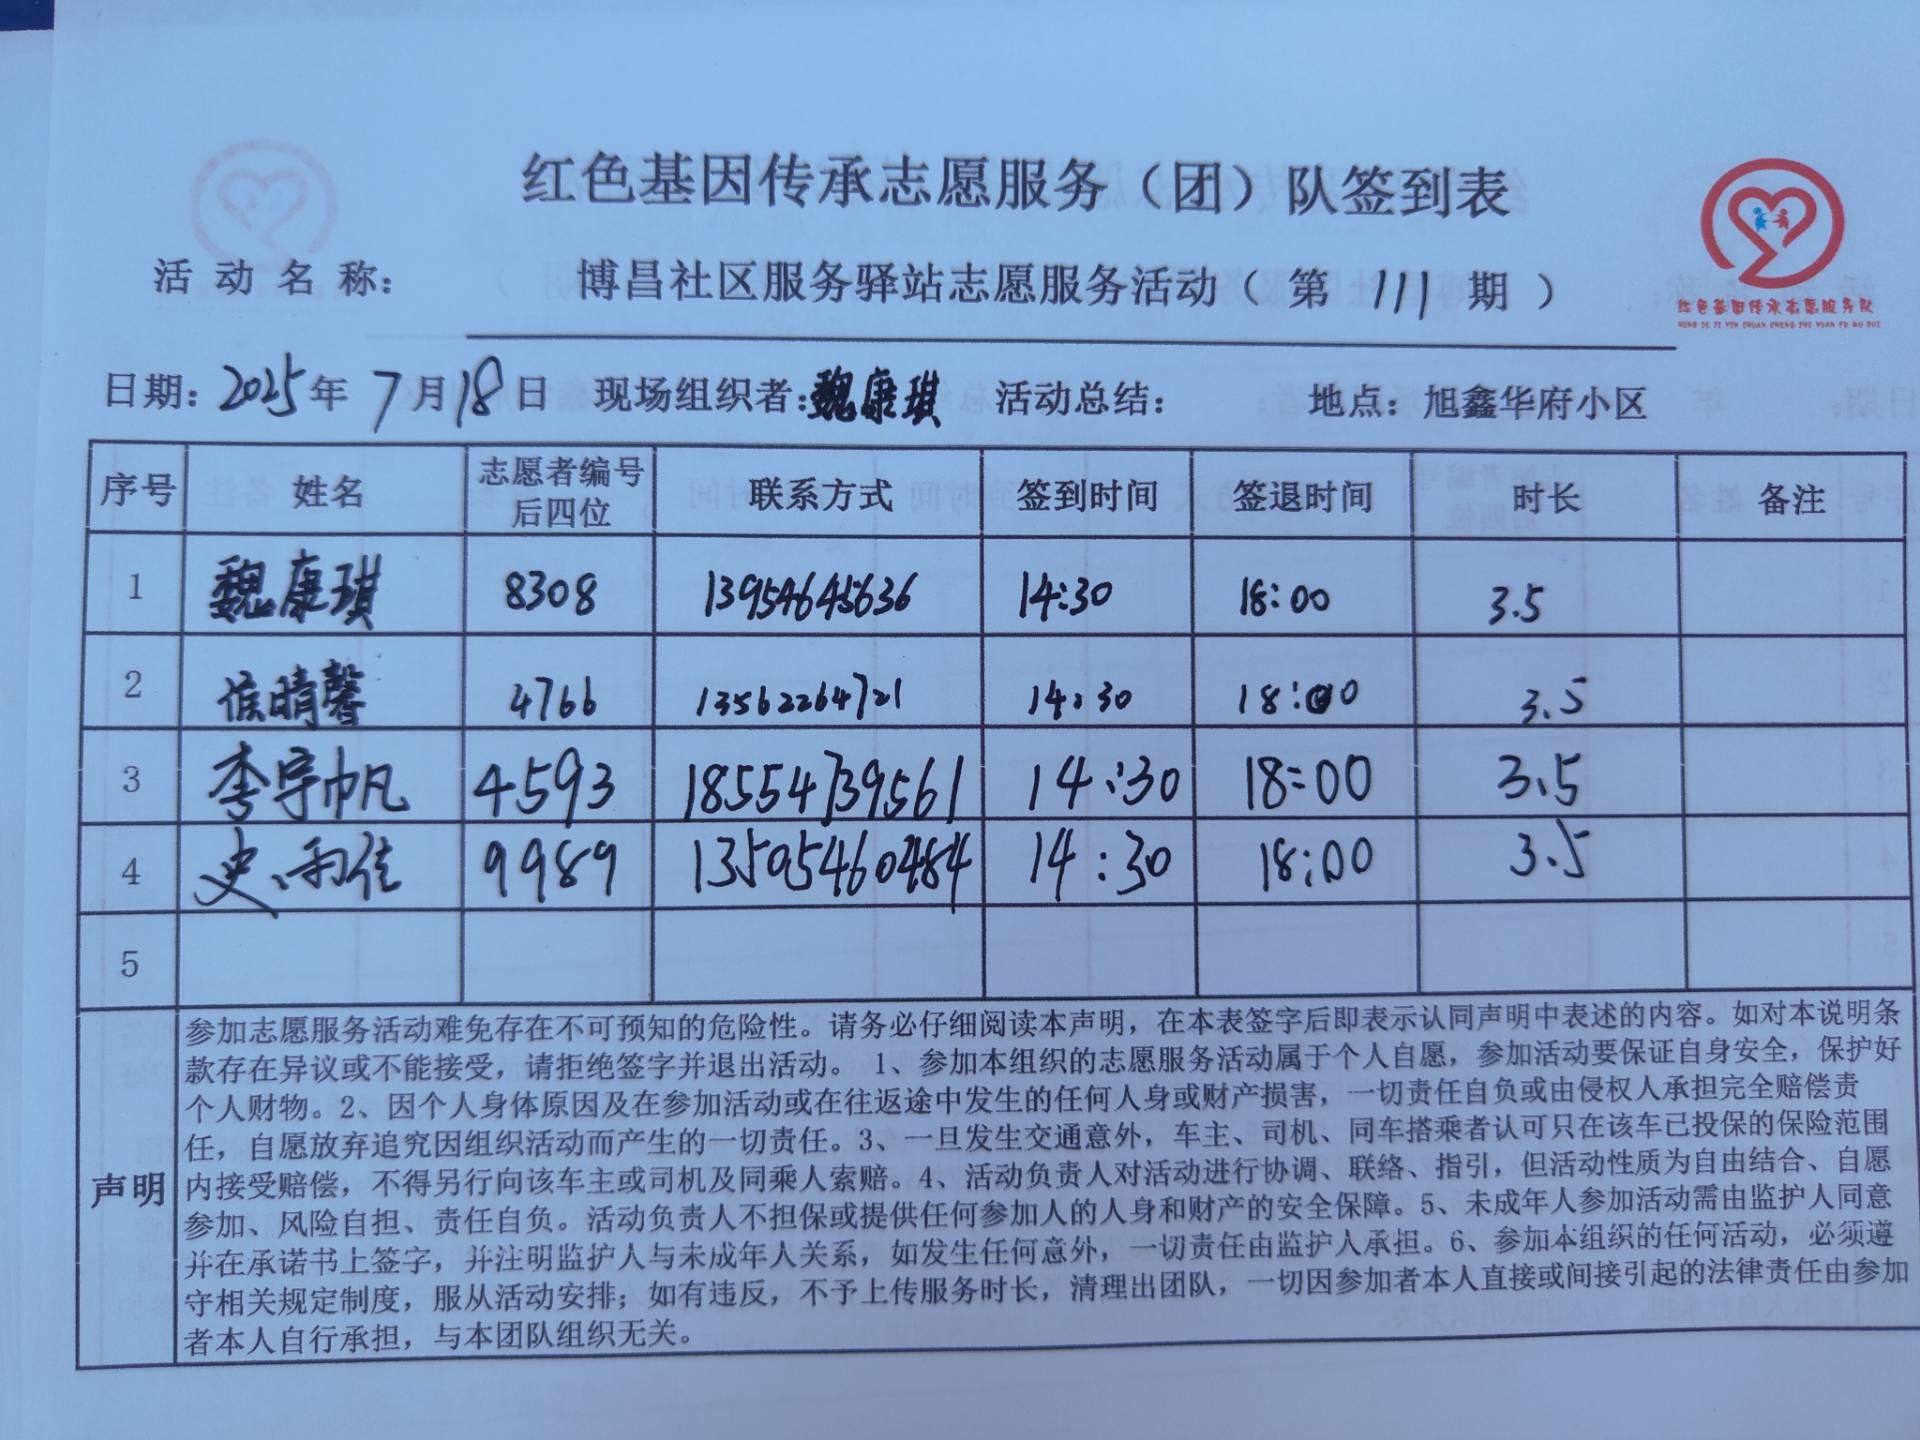 红色基因传承志愿服务（团）队签到表
红色基因传承志愿服务队
HONG SE JI YIN CHUAN CHENG ZHI YUAN FU WU DUI
活动名称： 博昌社区服务驿站志愿服务活动（第 111 期）
日期：2025年 7月18日 现场组织者：魏康琪 活动总结： 地点：旭鑫华府小区
序号 姓名 志愿者编号后四位 联系方式 签到时间 签退时间 时长 备注
1 魏康琪 8308 13954645636 14:30 18:00 3.5
2 侯晴馨 4766 13562264721 14:30 18:00 3.5
3 李宇帆 4593 18554739561 14:30 18:00 3.5
4 史雨佳 9989 13505460484 14:30 18:00 3.5
5
声明
参加志愿服务活动难免存在不可预知的危险性。请务必仔细阅读本声明，在本表签字后即表示认同声明中表述的内容。如对本说明条
款存在异议或不能接受，请拒绝签字并退出活动。 1、参加本组织的志愿服务活动属于个人自愿，参加活动要保证自身安全，保护好
个人财物。2、因个人身体原因及在参加活动或在往返途中发生的任何人身或财产损害，一切责任自负或由侵权人承担完全赔偿责
任，自愿放弃追究因组织活动而产生的一切责任。3、一旦发生交通意外，车主、司机、同车搭乘者认可只在该车已投保的保险范围
内接受赔偿，不得另行向该车主或司机及同乘人索赔。4、活动负责人对活动进行协调、联络、指引，但活动性质为自由结合、自愿
参加、风险自担、责任自负。活动负责人不担保或提供任何参加人的人身和财产的安全保障。5、未成年人参加活动需由监护人同意
并在承诺书上签字，并注明监护人与未成年人关系，如发生任何意外，一切责任由监护人承担。6、参加本组织的任何活动，必须遵
守相关规定制度，服从活动安排；如有违反，不予上传服务时长，清理出团队，一切因参加者本人直接或间接引起的法律责任由参加
者本人自行承担，与本团队组织无关。